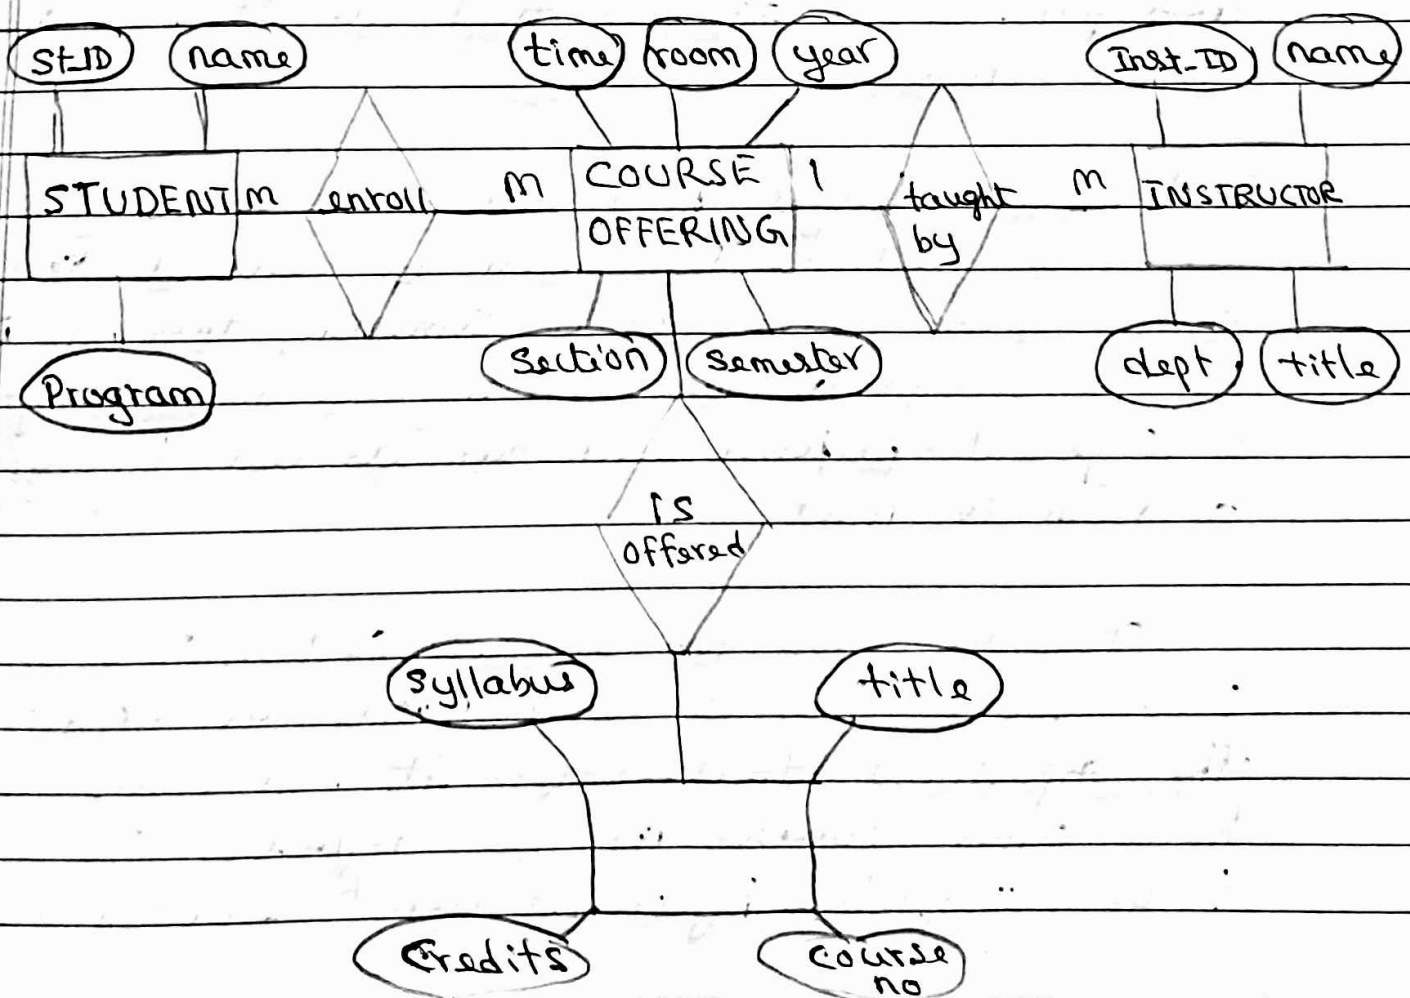 St_ID name time room year Inst-ID name
STUDENT m enroll m COURSE 1 taught m INSTRUCTOR
OFFERING by
Section semester dept title
Program
is
offered
syllabus title
Credits course
no